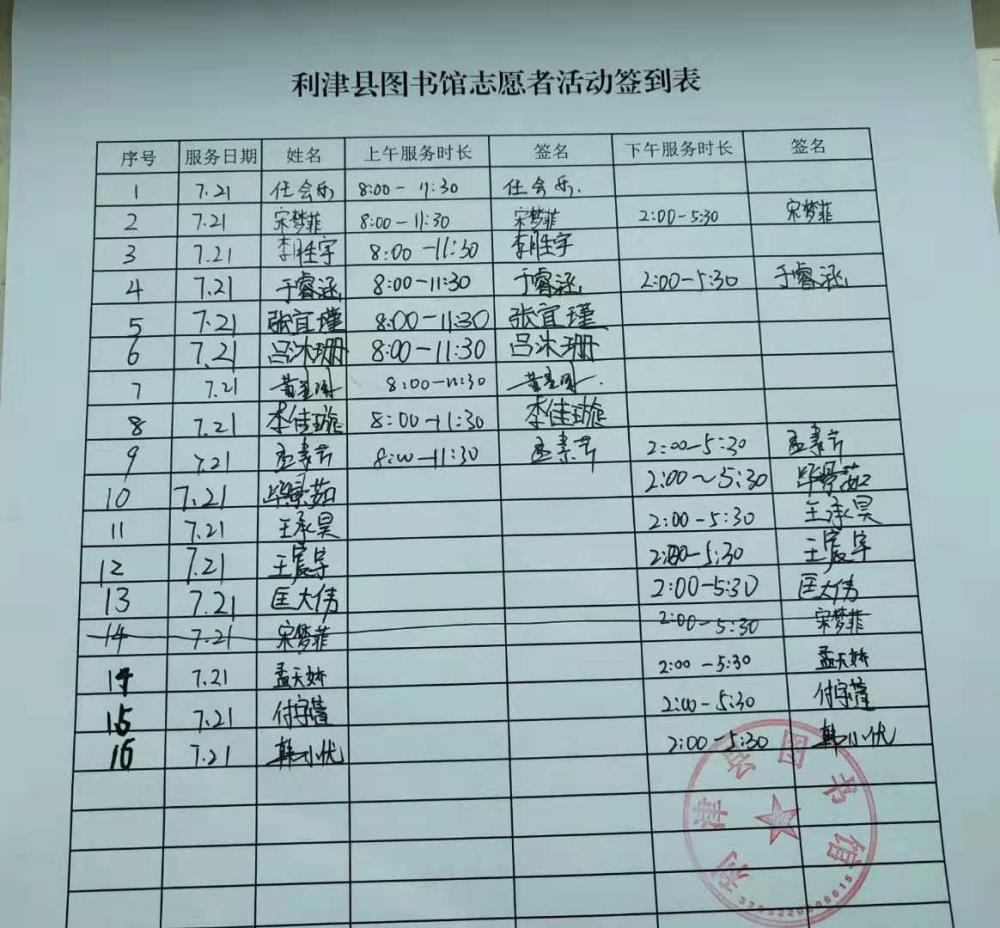 利津县图书馆志愿者活动签到表
序号 服务日期 姓名 上午服务时长 签名 下午服务时长 签名
1 7.21 任会乐 8:00-11:30 任会乐.
2 7.21 宋梦菲 8:00-11:30 宋梦菲 2:00-5:30 宋梦菲
3 7.21 李胜宇 8:00-11:30 李胜宇
4 7.21 于睿涵 8:00-11:30 于睿涵 2:00-5:30 于睿涵
5 7.21 张宜瑾 8:00-11:30 张宜瑾
6 7.21 吕沐珊 8:00-11:30 吕沐珊
7 7.21 8:00-11:30
8 7.21 李佳璇 8:00-11:30 李佳璇
9 7.21 孟素芹 8:00-11:30 孟素芹 2:00-5:30 孟素芹
10 7.21 毕景茹 2:00~5:30 毕景茹
11 7.21 王承昊 2:00-5:30 王承昊
12 7.21 王宸宇 2:00-5:30 王宸宇
13 7.21 匡大伟 2:00-5:30 匡大伟
14 7.21 宋梦菲 2:00-5:30 宋梦菲
14 7.21 孟天娇 2:00-5:30 孟天娇
15 7.21 付宇蕴 2:00-5:30 付宇蕴
16 7.21 韩小优 2:00-5:30 韩小优
利津县图书馆